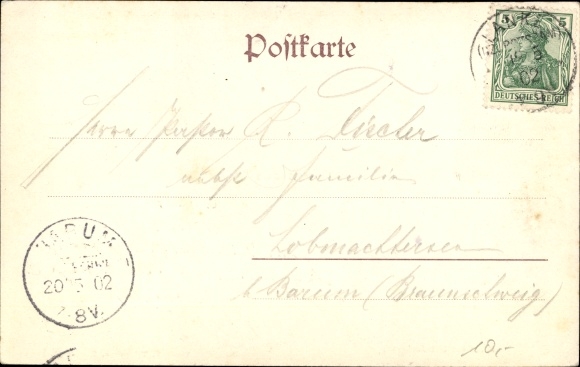 5 5
DEUTSCHES REICH
02
Postkarte
Herrn Pastor R. Fischer
nebst Familie
Lobmachtersen
b/ Barum (Braunschweig)
BARUM
20 5 02
7-8V.
10,-